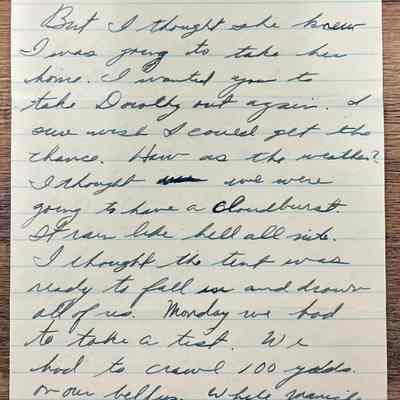 But I thought she knew
I was going to take her
home. I wanted you to
take Dorothy out again. I
sure wish I could get the
chance. How as the weather?
I thought we were
going to have a cloudburst.
It ran like hell all nite.
I thought the tent was
ready to fall in and drown
all of us. Monday we had
to take a test. We
had to crawl 100 yards
on our bellys. While